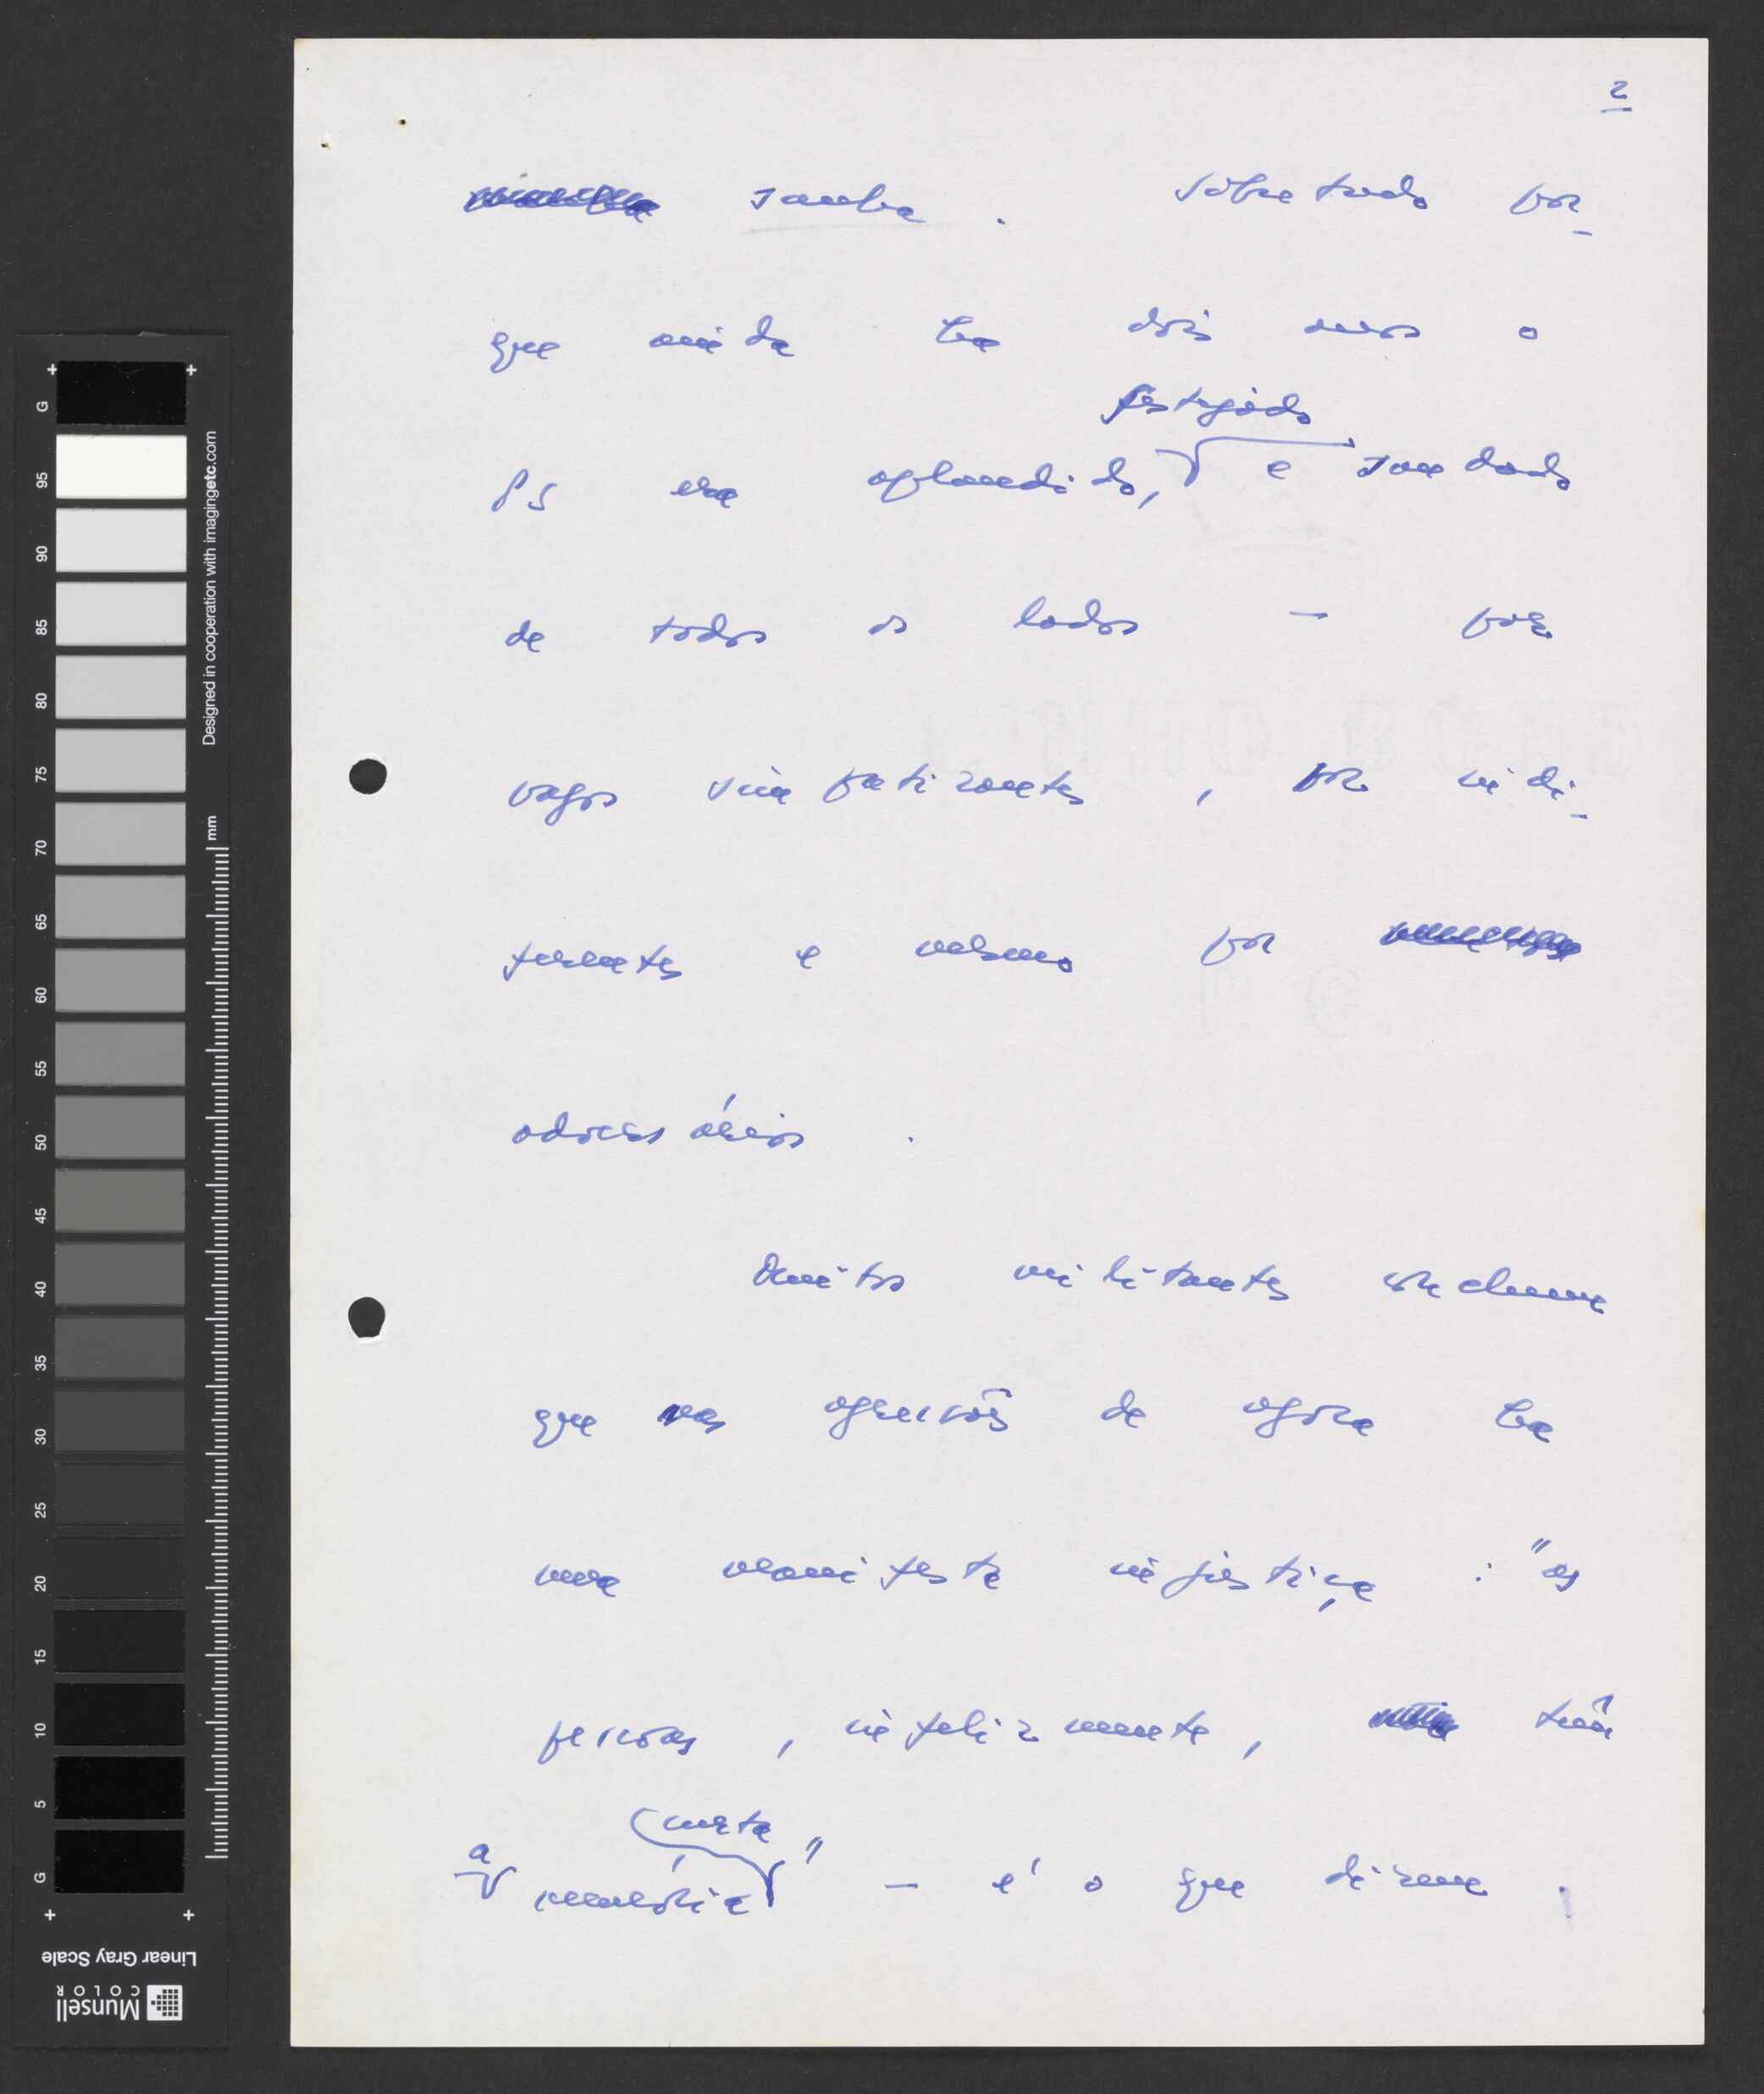 2
samba. Sobretudo por-
que ainda há dois anos o
festejado
PS era aplaudido, e saudado
de todos os lados — por
vagos simpatizantes, por indi-
ferentes e mesmo por
adversários.
Muitos militantes reclamam
que nas agressões de agora há
uma manifesta injustiça: "as
pessoas, infelizmente, têm
curta
a memória" — é o que dizem.
G
95
90
85
80
75
70
65
60
55
50
45
40
35
30
25
20
15
10
5
G
mm
Designed in cooperation with imagingetc.com
Linear Gray Scale
Munsell
COLOR